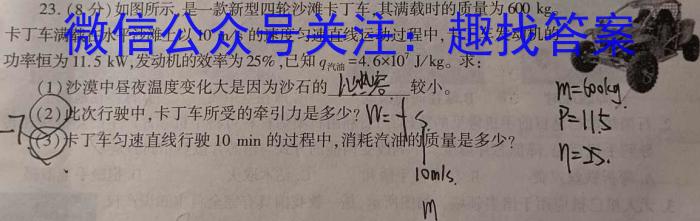 23. (8分)如图所示,是一款新型四轮沙滩卡丁车,其满载时的质量为600 kg。
卡丁车满载在水平沙滩上以10 m/s的速度匀速直线运动过程中,卡丁车发动机的
微信公众号关注:趣找答案
功率恒为11.5 kW,发动机的效率为25%,已知q汽油=4.6×10⁷ J/kg。求:
(1)沙漠中昼夜温度变化大是因为沙石的 比热容 较小。
(2)此次行驶中,卡丁车所受的牵引力是多少? W=fs
-7
(3)卡丁车匀速直线行驶10 min的过程中,消耗汽油的质量是多少?
10m/s.
m
m=600kg
P=11.5
η=25.